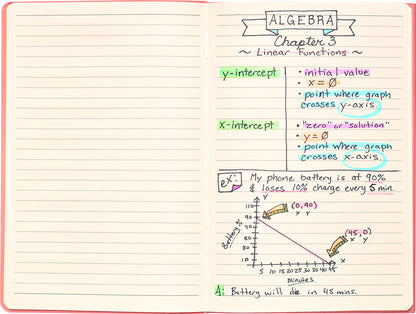 ALGEBRA
Chapter 3
~ Linear Functions ~
y-intercept
• initial value
• x = Ø
• point where graph
crosses y-axis.
x-intercept
• "zero" or "solution"
• y = Ø
• point where graph
crosses x-axis.
ex: My phone battery is at 90%
& loses 10% charge every 5 min.
Battery %
y
90
70
50
30
10
(0,90)
x y
(45,0)
x y
x
5 10 15 20 25 30 35 40 45
minutes
A: Battery will die in 45 mins.